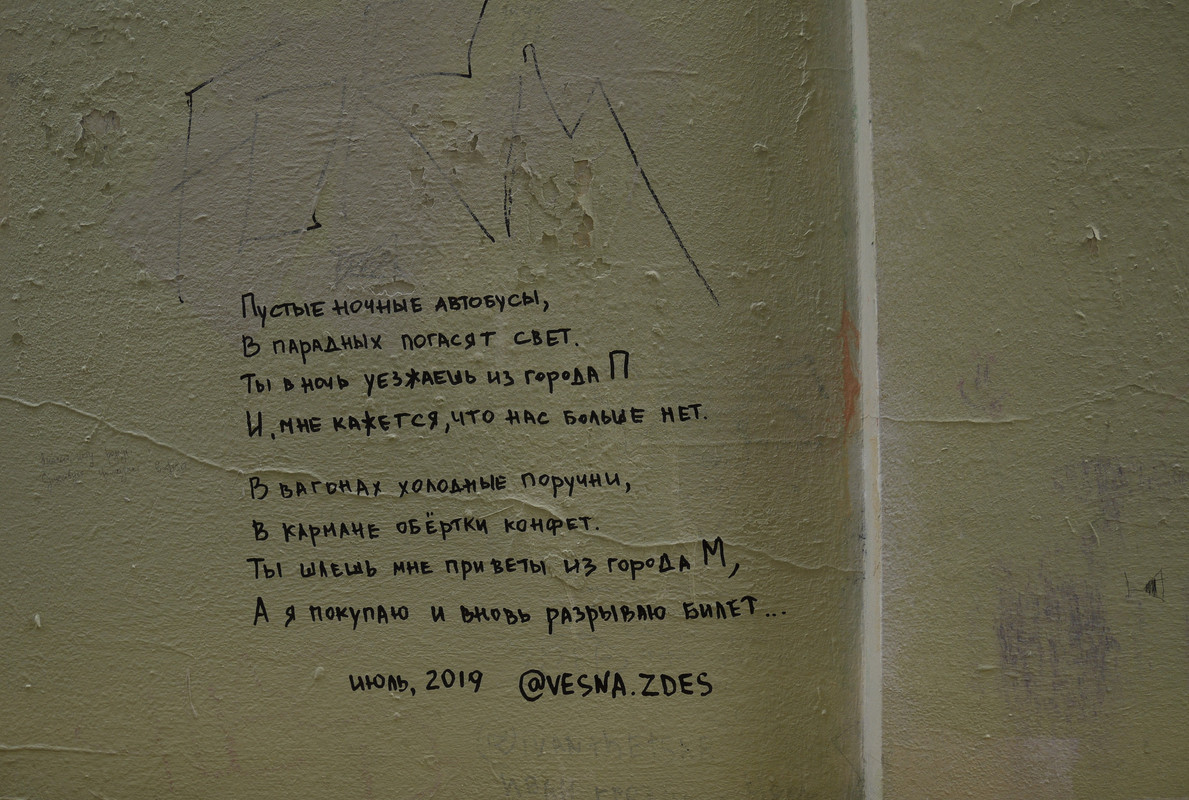 Пустые ночные автобусы,
В парадных погасят свет.
Ты в ночь уезжаешь из города П
И, мне кажется, что нас больше нет.
В вагонах холодные поручни,
В кармане обёртки конфет.
Ты шлешь мне приветы из города М,
А я покупаю и вновь разрываю билет...
июль, 2019 @VESNA.ZDES